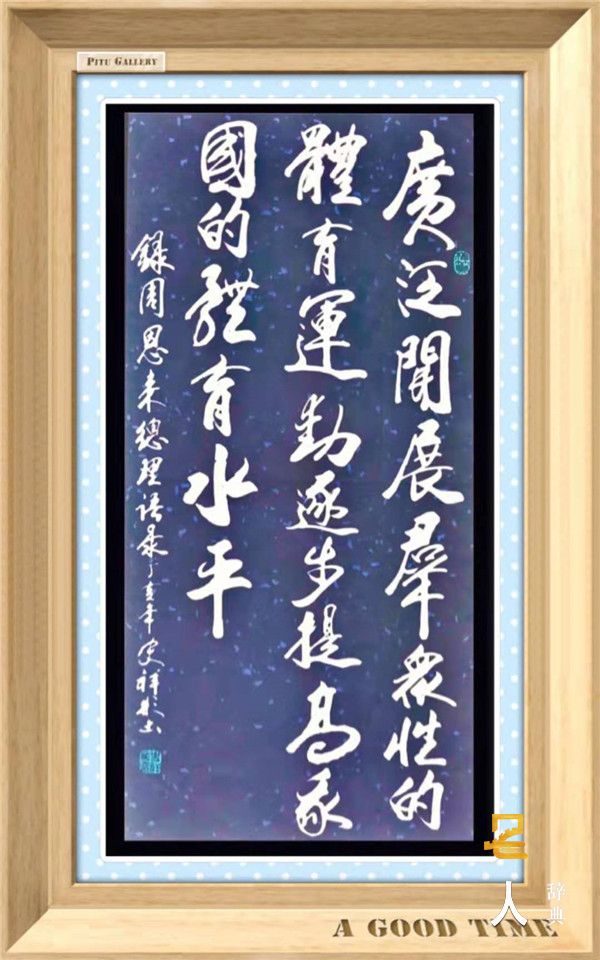 PITU GALLERY
廣泛開展羣衆性的
體育運動逐步提高我
國的體育水平
錄周恩来總理语录丁亥年史祥彬书
名人
辞典
A GOOD TIME